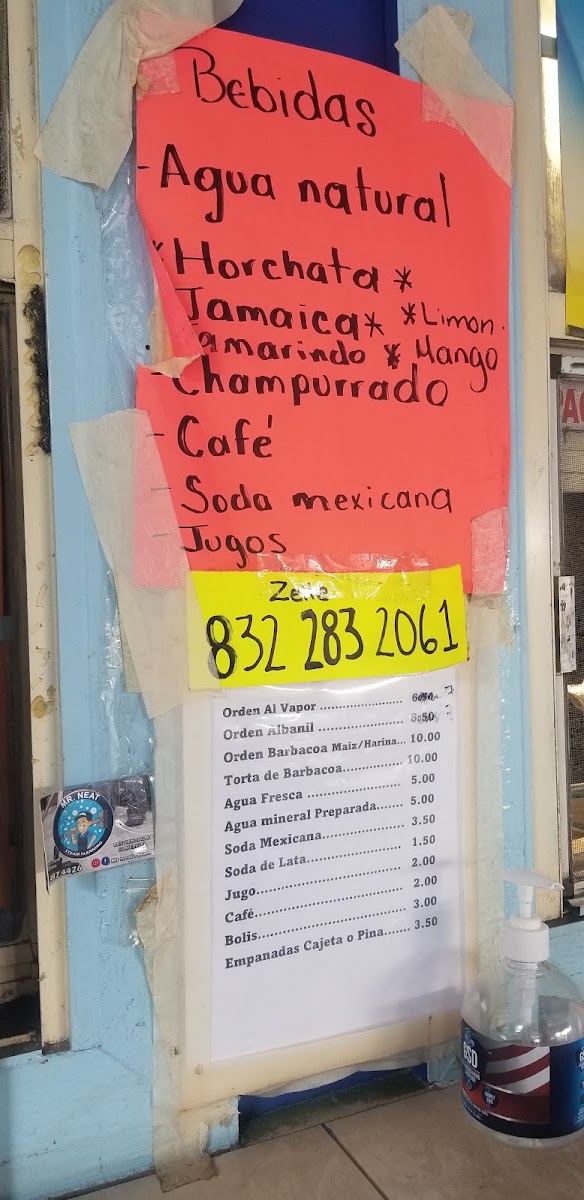 Bebidas
- Agua natural
* Horchata *
Jamaica * * Limon.
amarindo * Mango
- Champurrado
- Café
- Soda mexicana
- Jugos
Zelle
832 283 2061
Orden Al Vapor ......................
Orden Albanil ......................
Orden Barbacoa Maiz/Harina... 10.00
Torta de Barbacoa................ 10.00
Agua Fresca ........................ 5.00
Agua mineral Preparada....... 5.00
Soda Mexicana..................... 3.50
Soda de Lata........................ 1.50
Jugo..................................... 2.00
Café..................................... 2.00
Bolis..................................... 3.00
Empanadas Cajeta o Pina....... 3.50
MR. NEAT
STEAM CLEANING
RESIDENTIAL &
874426
GSD